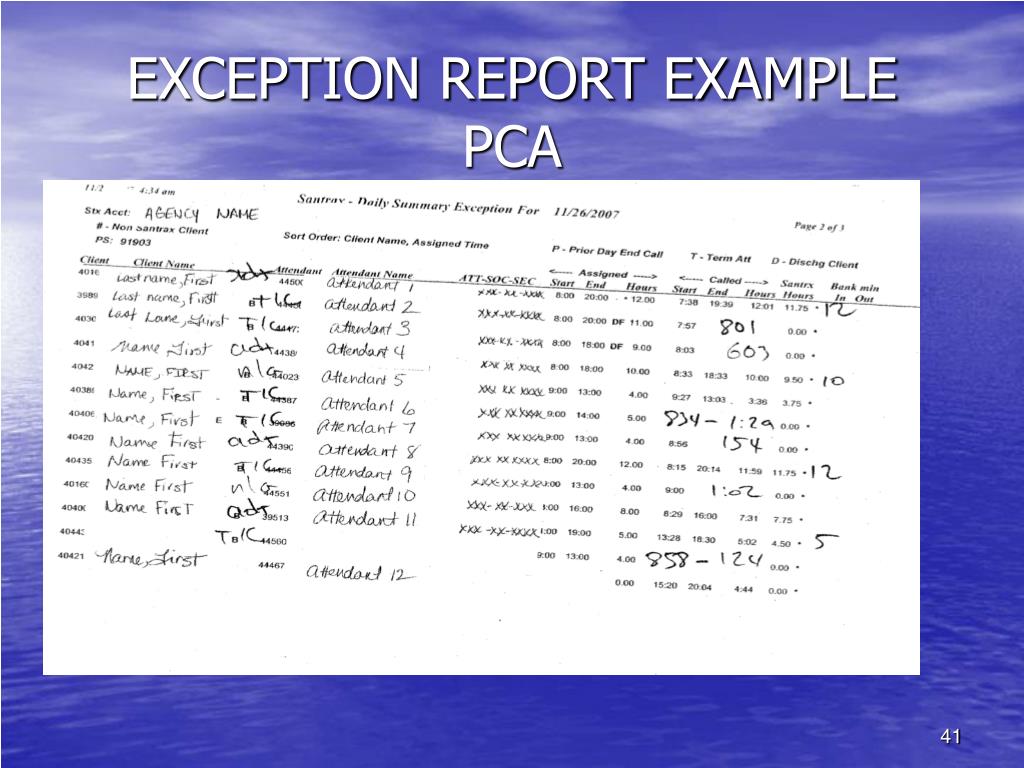 EXCEPTION REPORT EXAMPLE
PCA
11/2 4:34 am
Santrax - Daily Summary Exception For 11/26/2007
Stx Acct: AGENCY NAME
Page 2 of 3
# - Non Santrax Client
PS: 91903
Sort Order: Client Name, Assigned Time
P - Prior Day End Call T - Term Att D - Dischg Client
<----- Assigned -----> <----- Called ----->
Client Client Name Attendant Attendant Name ATT-SOC-SEC Start End Hours Start End Hours Santrx Hours Bank min In Out
4016 Last name, First adj 4450 Attendant 1 xxx-xx-xxxx 8:00 20:00 * 12.00 7:38 19:39 12:01 11.75 * 12
3989 Last name, First Attendant 2 xxx-xx-xxxx 8:00 20:00 DF 11.00 7:57 801 0.00 *
4030 Last Lane, First T/C Attendant 3 xxx-xx-xxxx 8:00 18:00 DF 9.00 8:03 603 0.00 *
4041 Name First adj 4438 Attendant 4 xxx xx xxxx 8:00 18:00 10.00 8:33 18:33 10:00 9.50 * 10
4042 NAME, FIRST 44023 Attendant 5 xxx xx xxxx 9:00 13:00 4.00 9:27 13:03 3:36 3.75 *
4038 Name, First T/C 44387 Attendant 6 xxx xx xxxx 9:00 14:00 5.00 834 - 1:29 0.00 *
40406 Name, First E T/C Attendant 7 xxx xx xxxx 9:00 13:00 4.00 8:56 154 0.00 *
40420 Name First adj 4439 Attendant 8 xxx xx xxxx 8:00 20:00 12.00 8:15 20:14 11:59 11.75 * 12
40435 Name First T/C 44456 Attendant 9 xxx-xx-xxxx 13:00 4.00 9:00 1:02 0.00 *
4016 Name First 44551 Attendant 10 xxx-xx-xxxx 16:00 8.00 8:29 16:00 7:31 7.75 *
4040 Name First adj 39513 Attendant 11 xxx-xx-xxxx 19:00 5.00 13:28 18:30 5:02 4.50 * 5
4044 TB/C 44560 9:00 13:00 4.00 858 - 124 0.00 *
40421 Name, First 44467 Attendant 12 0.00 15:20 20:04 4:44 0.00 *
41